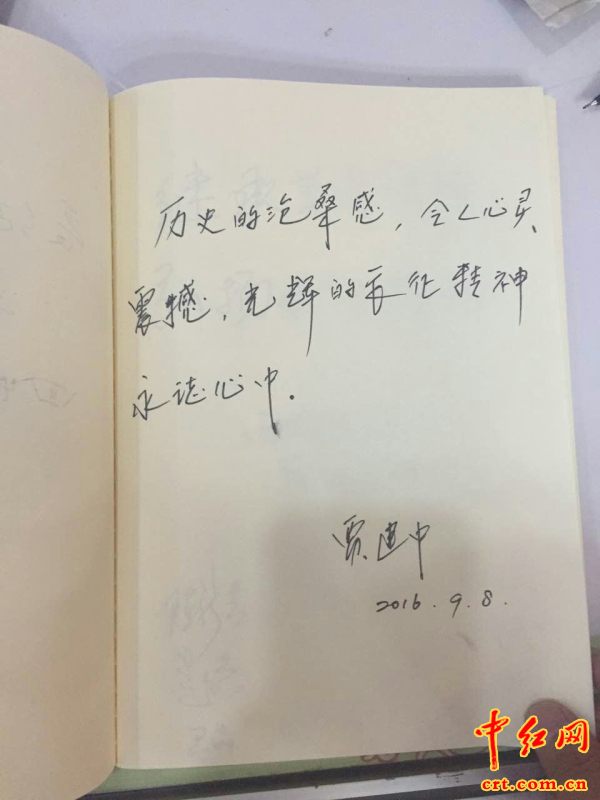 历史的沧桑感，令人心灵
震撼，光辉的长征精神
永誌心中.
贾建中
2016.9.8.
中红网
crt.com.cn